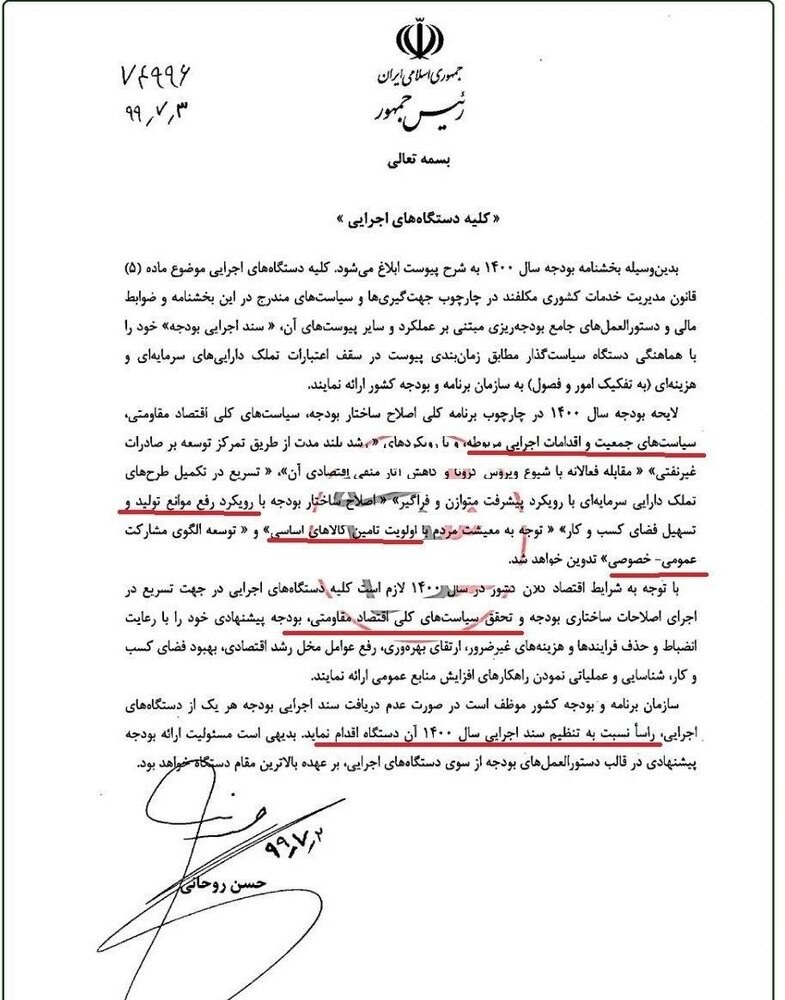 جمهوری اسلامی ایران
رئیس جمهور
۷۴۹۹۶
۹۹٫۷٫۳
بسمه تعالی
« کلیه دستگاه‌های اجرایی »
بدین‌وسیله بخشنامه بودجه سال ۱۴۰۰ به شرح پیوست ابلاغ می‌شود. کلیه دستگاه‌های اجرایی موضوع ماده (۵)
قانون مدیریت خدمات کشوری مکلفند در چارچوب جهت‌گیری‌ها و سیاست‌های مندرج در این بخشنامه و ضوابط
مالی و دستورالعمل‌های جامع بودجه‌ریزی مبتنی بر عملکرد و سایر پیوست‌های آن، « سند اجرایی بودجه» خود را
با هماهنگی دستگاه سیاست‌گذار مطابق زمان‌بندی پیوست در سقف اعتبارات تملک دارایی‌های سرمایه‌ای و
هزینه‌ای (به تفکیک امور و فصول) به سازمان برنامه و بودجه کشور ارائه نمایند.
لایحه بودجه سال ۱۴۰۰ در چارچوب برنامه کلی اصلاح ساختار بودجه، سیاست‌های کلی اقتصاد مقاومتی،
سیاست‌های جمعیت و اقدامات اجرایی مربوطه، و با رویکردهای «رشد بلند مدت از طریق تمرکز توسعه بر صادرات
غیرنفتی» « مقابله فعالانه با شیوع ویروس کرونا و کاهش آثار منفی اقتصادی آن»، « تسریع در تکمیل طرح‌های
تملک دارایی سرمایه‌ای با رویکرد پیشرفت متوازن و فراگیر» « اصلاح ساختار بودجه با رویکرد رفع موانع تولید و
تسهیل فضای کسب و کار» « توجه به معیشت مردم با اولویت تامین کالاهای اساسی» و « توسعه الگوی مشارکت
عمومی- خصوصی» تدوین خواهد شد.
با توجه به شرایط اقتصاد کلان کشور در سال ۱۴۰۰ لازم است کلیه دستگاه‌های اجرایی در جهت تسریع در
اجرای اصلاحات ساختاری بودجه و تحقق سیاست‌های کلی اقتصاد مقاومتی، بودجه پیشنهادی خود را با رعایت
انضباط و حذف فرایندها و هزینه‌های غیرضرور، ارتقای بهره‌وری، رفع عوامل مخل رشد اقتصادی، بهبود فضای کسب
و کار، شناسایی و عملیاتی نمودن راهکارهای افزایش منابع عمومی ارائه نمایند.
سازمان برنامه و بودجه کشور موظف است در صورت عدم دریافت سند اجرایی بودجه هر یک از دستگاه‌های
اجرایی، راساً نسبت به تنظیم سند اجرایی سال ۱۴۰۰ آن دستگاه اقدام نماید. بدیهی است مسئولیت ارائه بودجه
پیشنهادی در قالب دستورالعمل‌های بودجه از سوی دستگاه‌های اجرایی، بر عهده بالاترین مقام دستگاه خواهد بود.
۹۹٫۷٫۲
حسن روحانی